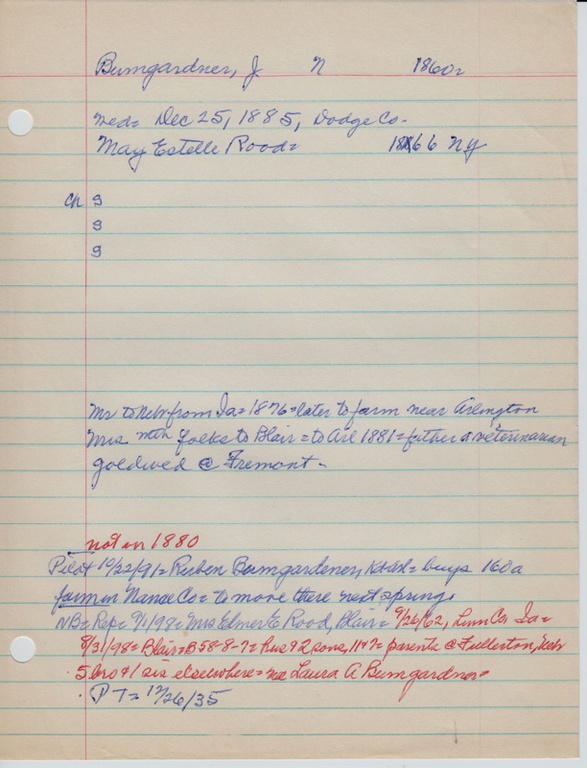 Bumgardner, J N 1860=
wed= Dec 25, 1885, Dodge Co-
May Estelle Rood= 1866 NY
ch S
S
S
Mr to Nebr from Ia= 1876= later to farm near Arlington
Mrs with folks to Blair= to Arl 1881= father a veterinarian
goldwed @ Fremont-
not in 1880
Pilot 10/22/91= Reuben Bumgardener, buys 160a
farm in Nance Co= to move there next spring
NB= Rep= 9/1/98= Mrs Elmer E Rood, Blair= 9/26/62, Linn Co Ia=
8/31/98= Blair= B 58-8-7= hus & 2 sons, parents @ Fullerton, Nebr
5 bros & 1 sis elsewhere= nee Laura A Bumgardner=
PT= 12/26/35